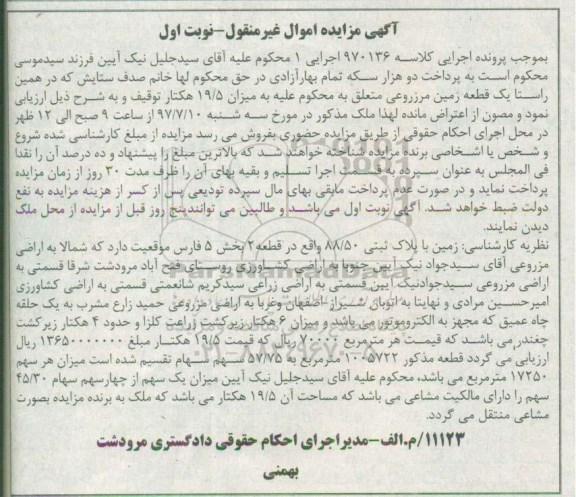 آگهی مزایده اموال غیرمنقول-نوبت اول
بموجب پرونده اجرایی کلاسه ۹۷۰۱۳۶ اجرایی ۱ محکوم علیه آقای سیدجلیل نیک آیین فرزند سیدموسی
محکوم است به پرداخت دو هزار سکه تمام بهارآزادی در حق محکوم لها خانم صدف ستایش که در همین
راستا یک قطعه زمین مرزروعی متعلق به محکوم علیه به میزان ۱۹/۵ هکتار توقیف و به شرح ذیل ارزیابی
نمود و مصون از اعتراض مانده لهذا ملک مذکور در مورخ سه شنبه ۹۷/۷/۱۰ از ساعت ۹ صبح الی ۱۲ ظهر
در محل اجرای احکام حقوقی از طریق مزایده حضوری بفروش می رسد مزایده از مبلغ کارشناسی شده شروع
و شخص یا اشخاصی برنده مزایده شناخته خواهند شد که بالاترین مبلغ را پیشنهاد و ده درصد آن را نقدا
فی المجلس به عنوان سپرده به قسمت اجرا تسلیم و بقیه بهای آن را ظرف مدت ۳۰ روز از زمان مزایده
پرداخت نماید و در صورت عدم پرداخت مابقی بهای مال سپرده تودیعی پس از کسر از هزینه مزایده به نفع
دولت ضبط خواهد شد. آگهی نوبت اول می باشد و طالبین می توانندپنج روز قبل از مزایده از محل ملک
دیدن نمایند.
نظریه کارشناسی: زمین با پلاک ثبتی ۸۸/۵۰ واقع در قطعه۲ بخش ۵ فارس موقعیت دارد که شمالا به اراضی
مزروعی آقای سیدجواد نیک آیین جنوبا به اراضی کشاورزی روستای فتح آباد مرودشت شرقا قسمتی به
اراضی مزروعی سیدجوادنیک آیین قسمتی به اراضی زراعی سیدکریم شانعمتی قسمتی به اراضی کشاورزی
امیرحسین مرادی و نهایتا به اتوبان شیراز-اصفهان وغربا به اراضی مزروعی حمید زارع مشرب به یک حلقه
چاه عمیق که مجهز به الکتروموتور می باشد و میزان ۶ هکتار زیرکشت زراعت کلزا و حدود ۴ هکتار زیرکشت
چغندر می باشد که قیمت هر مترمربع ۷۰۰۰۰ ریال که قیمت ۱۹/۵ هکتار مبلغ ۱۳۶۵۰۰۰۰۰۰۰ ریال
ارزیابی می گردد قطعه مذکور ۱۰۰۵۷۲۲ مترمربع به ۵۷/۷۵ سهم سهام تقسیم شده است میزان هر سهم
۱۷۲۵۰ مترمربع می باشد، محکوم علیه آقای سیدجلیل نیک آیین میزان یک سهم از چهارسهم سهام ۴۵/۳۰
سهم را دارای مالکیت مشاعی می باشد که مساحت آن ۱۹/۵ هکتار می باشد که ملک به برنده مزایده بصورت
مشاعی منتقل می گردد.
۱۱۱۲۳/م.الف-مدیراجرای احکام حقوقی دادگستری مرودشت
بهمنی